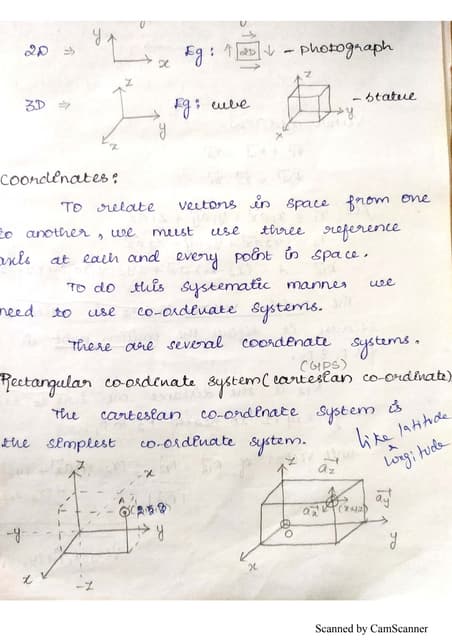 2D ⇒ y x Eg: ↑ 2D ↓ - photograph
3D ⇒ z y x Eg: cube z y x - statue
Coordinates:
To relate vectors in space from one
to another, we must use three reference
axis at each and every point in space.
To do this systematic manner we
need to use co-ordinate systems.
There are several coordinate systems.
(GPS)
Rectangular co-ordinate system (cartesian co-ordinate)
The cartesian co-ordinate system is
the simplest co-ordinate system.
like latitude
& longitude
z -x z az
A
ax (x,y,z) ay
-y y O
x -z x y
Scanned by CamScanner